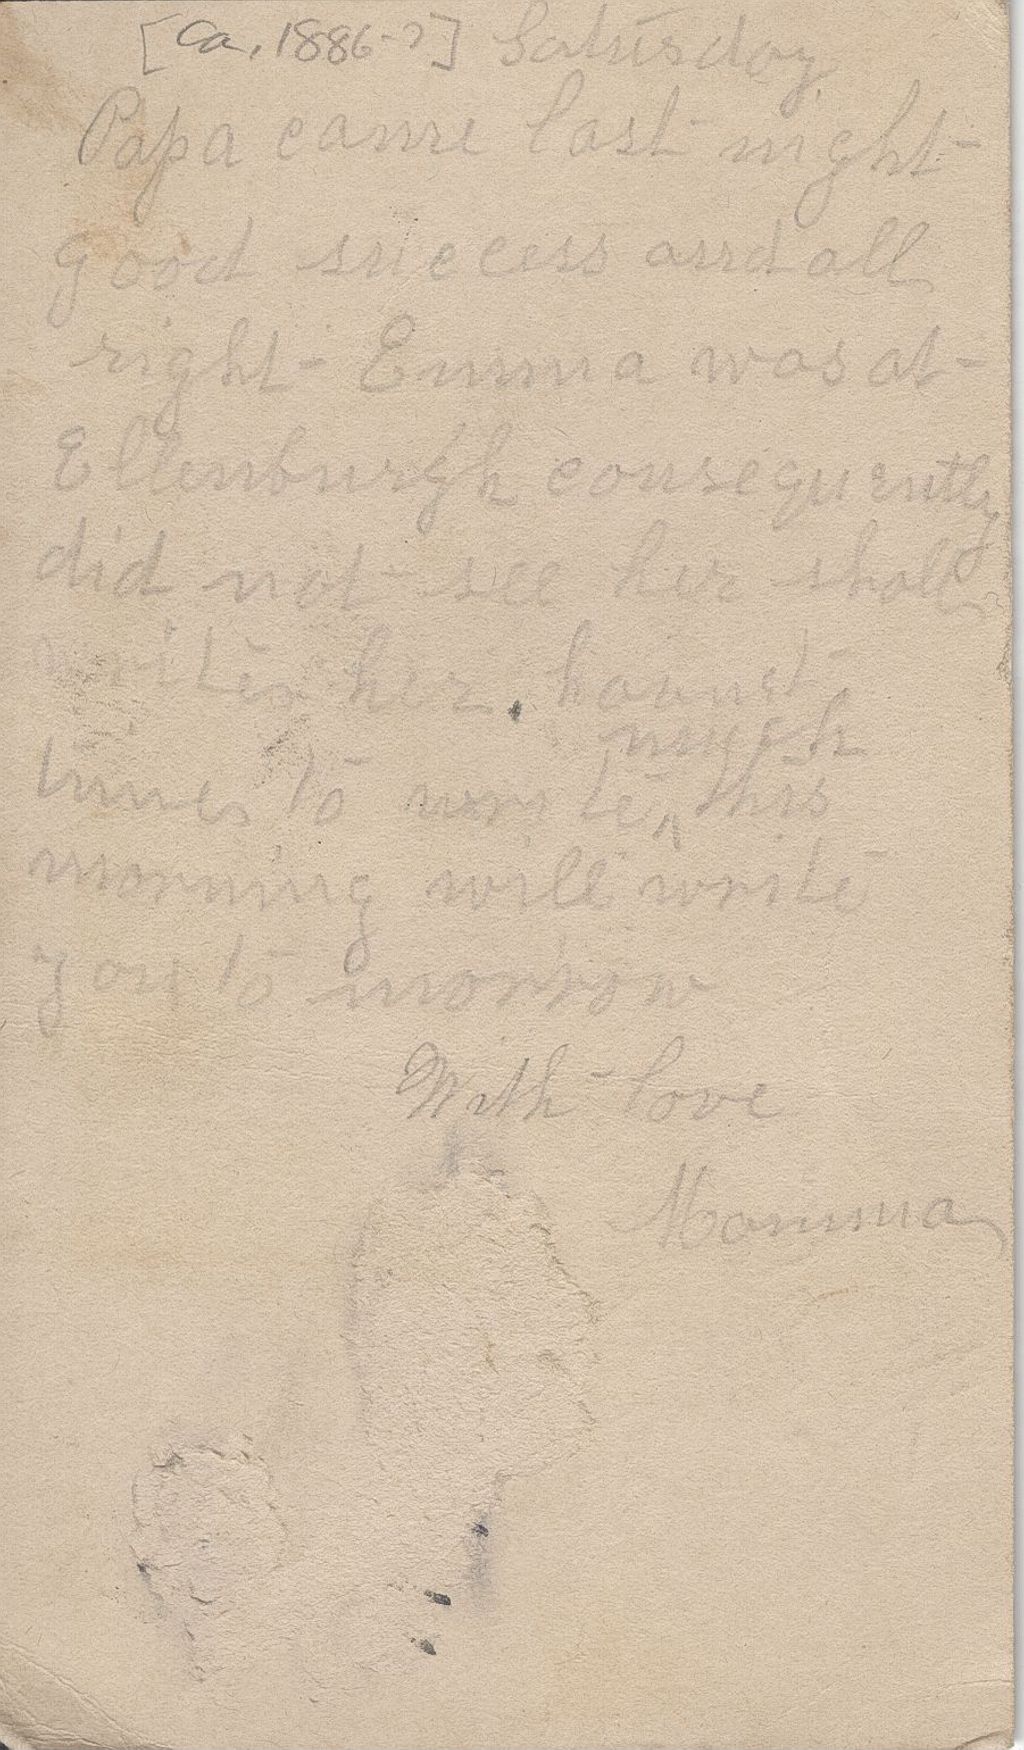 [Ca. 1886-?] Saturday
Papa came last night-
good success and all
right- Emma was at-
Ellenburgh consequently
did not- see her shall
write her. havnt
much
time to write ^ this
morning will write
you to morrow
With love
Mamma